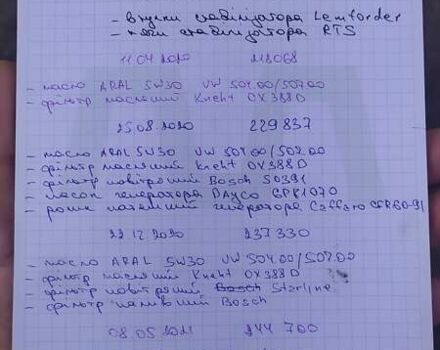 - втулки стабілізатора Lemforder
- тяги стабілізатора RTS
11.04.2020 218068
- масло ARAL 5W30 VW 504.00/507.00
- фільтр масляний Kneht OX388D
25.08.2020 229837
- масло ARAL 5W30 VW 504.00/507.00
- фільтр масляний Kneht OX388D
- фільтр повітряний Bosch S0391
- пасок генератора DAyco 6PK1070
- ролик натяжний генератора Caffaro
22.12.2020 237330
- масло ARAL 5W30 VW 504.00/507.00
- фільтр масляний Kneht OX388D
- фільтр повітряний Bosch Starline
- фільтр паливний Bosch
08.05.2021 244700